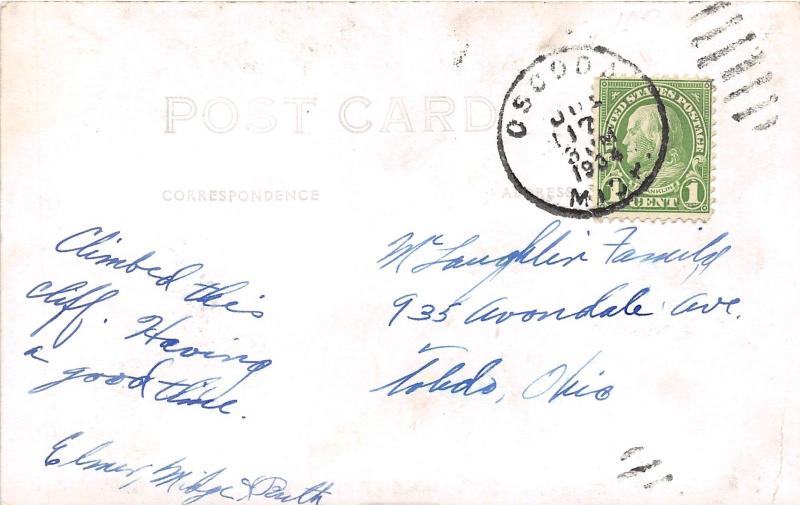 POST CARD
CORRESPONDENCE
ADDRESS
OSCODA
JUL
17
1934
MICH.
UNITED STATES POSTAGE
FRANKLIN
1 CENT 1
Climbed this
cliff. Having
a good time.
Elmer, Midge & Ruth
McLaughlin Family
935 Avondale Ave.
Toledo, Ohio